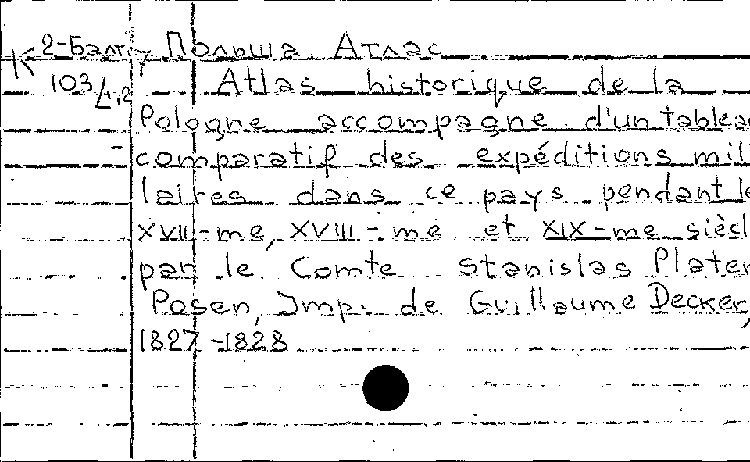 К 2-Балт Польша Атлас
103/1,2 Atlas historique de la
Pologne accompagne d'un tableau
comparatif des expéditions mili
laires dans ce pays pendant le
XVII-me, XVIII-me et XIX-me sièсl
par le Comte Stanislas Plater
Posen, Imp. de Guillaume Decker,
1827-1828